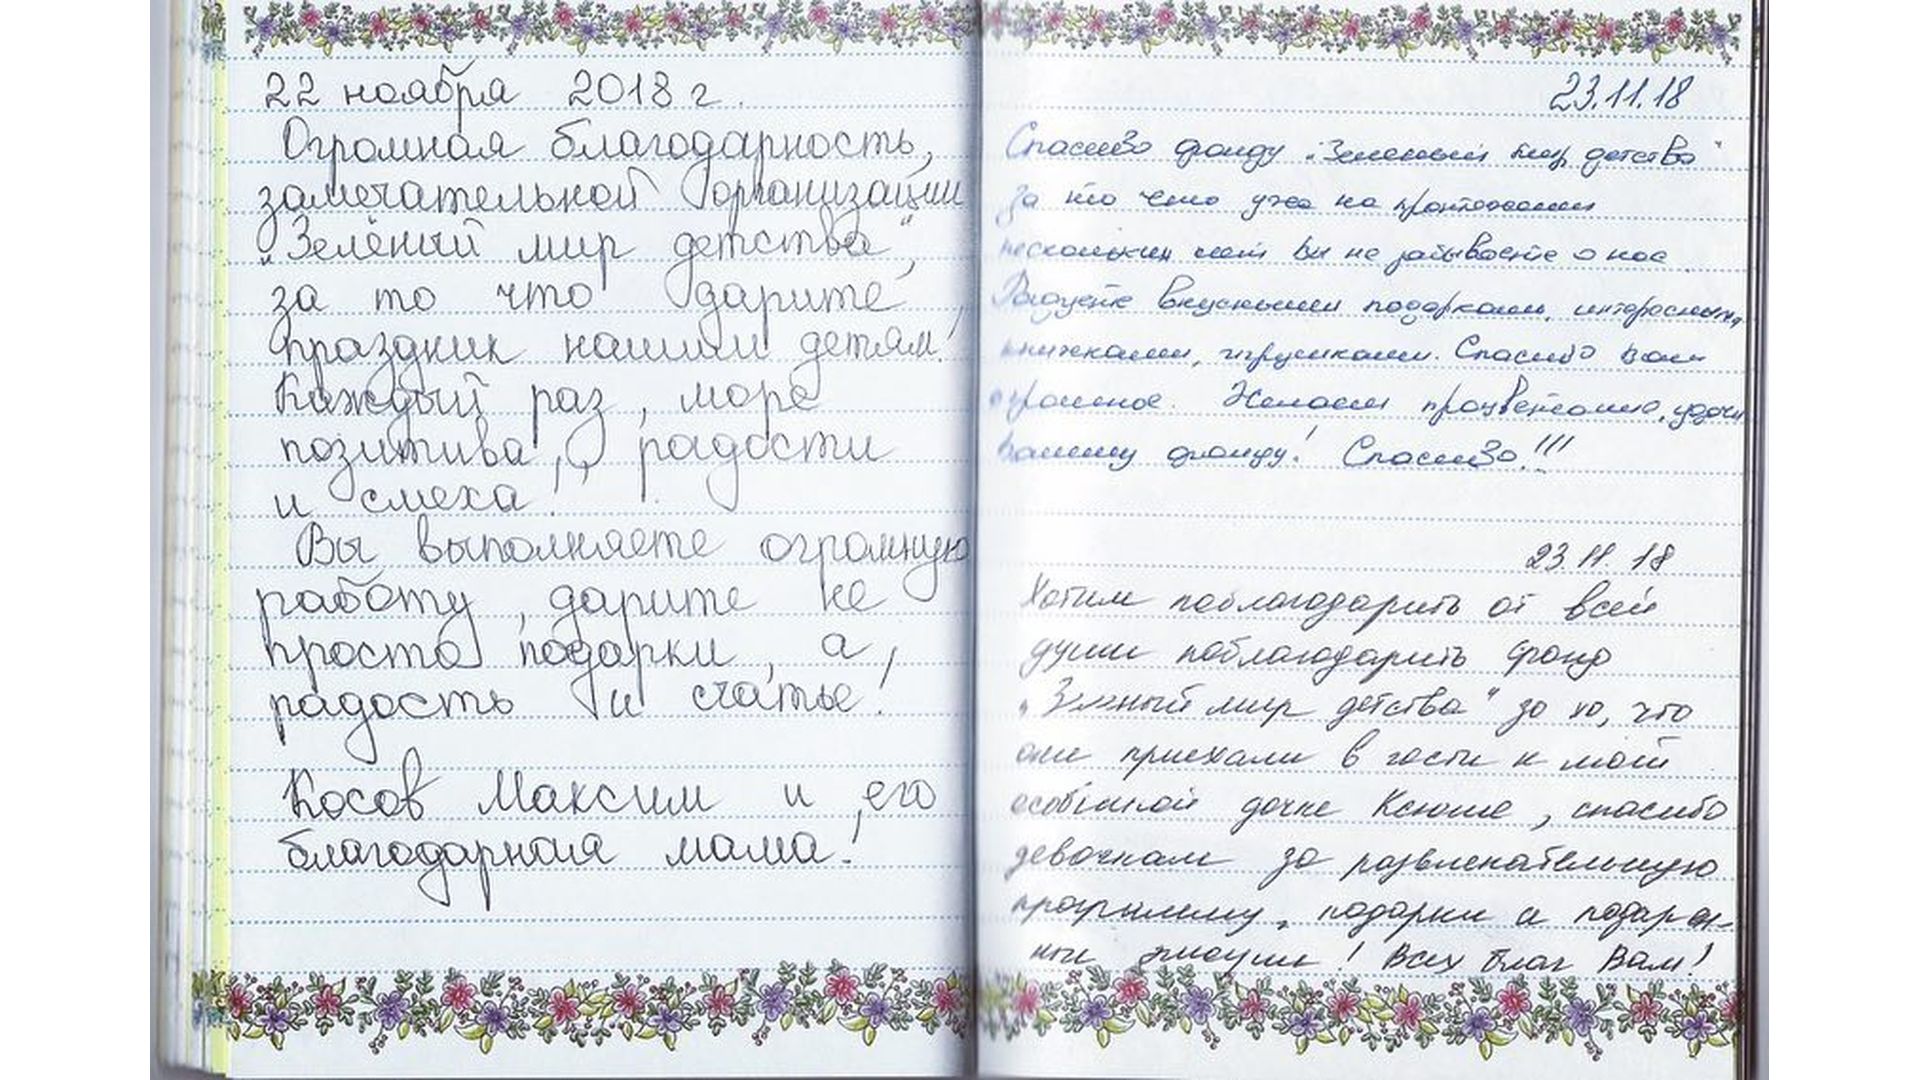 22 ноября 2018 г.
Огромная благодарность,
замечательной организации
„Зелёный мир детства“,
за то что дарите
праздник нашим детям!
Каждый раз, море
позитива, радости
и смеха!
Вы выполняете огромную
работу, дарите не
просто подарки, а,
радость и счатье!
Косов Максим и его
благодарная мама!
23.11.18
Спасибо фонду „Зеленый мир детства“
за то что уже на протяжении
нескольких лет Вы не забываете о нас.
Радуете вкусными подарками, интересными
книжками, игрушками. Спасибо вам
огромное. Желаем процветания, удачи
вашему фонду! Спасибо!!!
23.11.18
Хотим поблагодарить от всей
души поблагодарить фонд
„Земный мир детства“ за то, что
они приехали в гости к моей
особенной дочке Ксюше, спасибо
девочкам за развлекательную
программу, подарки и подарен-
ные эмоции! Всех благ Вам!